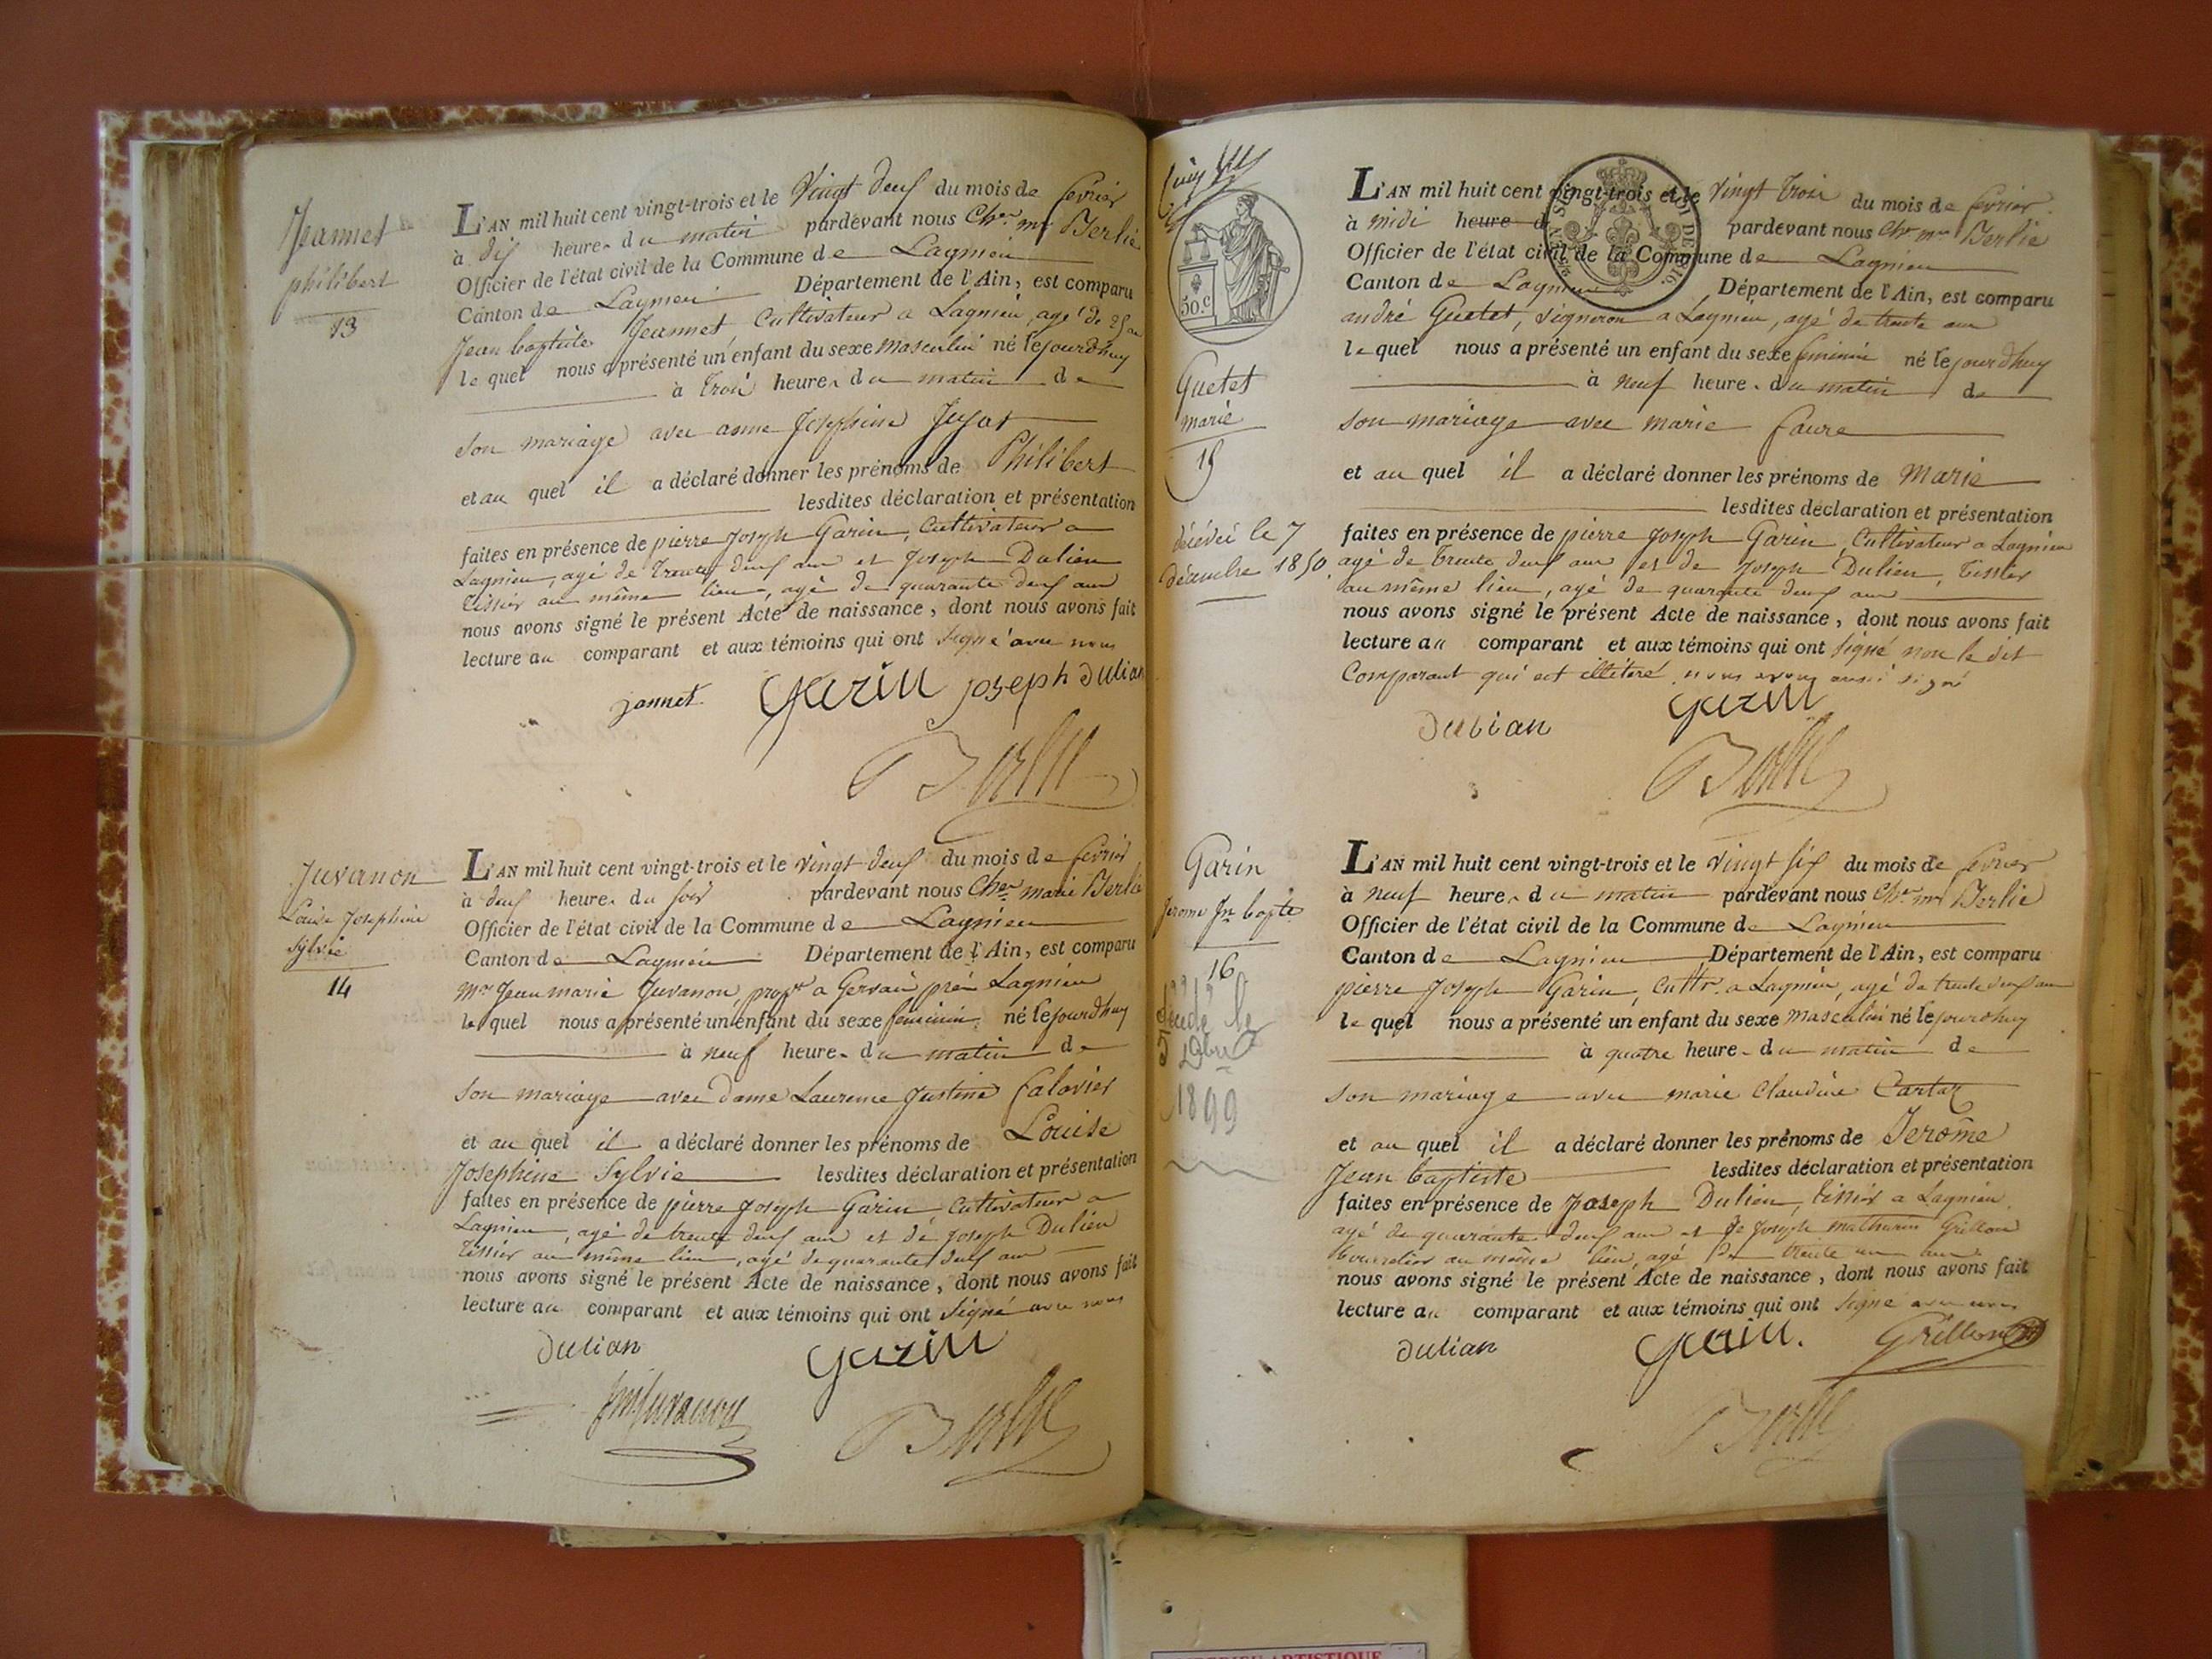 Jeannet
philibert
13
L'AN mil huit cent vingt-trois et le Vingt deux du mois de fevrier
à dix heures du matin pardevant nous Cher. Berlie
Officier de l'état civil de la Commune de Lagnieu
Canton de Lagnieu Département de l'Ain, est comparu
Jean baptiste Jeannet Cultivateur a Lagnieu, agé de 25 ans
le quel nous a présenté un enfant du sexe masculin né le jourdhuy
à trois heures du matin de
son mariage avec anne Josephine
et au quel il a déclaré donner les prénoms de Philibert
lesdites déclaration et présentation
faites en présence de pierre Joseph Garin, Cultivateur a
Lagnieu, agé de trente deux ans et Joseph Dulien
tissier au même lieu, agé de quarante deux ans
nous avons signé le présent Acte de naissance, dont nous avons fait
lecture au comparant et aux témoins qui ont signé avec nous
jannet Garin joseph dulian
Berlie
Juvanon
Louise Josephine
Sylvie
14
L'AN mil huit cent vingt-trois et le vingt deux du mois de fevrier
à deux heures du soir pardevant nous Cher. marie Berlie
Officier de l'état civil de la Commune de Lagnieu
Canton de Lagnieu Département de l'Ain, est comparu
Mr Jean marie Juvanon, propre a Gervais près Lagnieu
le quel nous a présenté un enfant du sexe feminin né le jourdhuy
à neuf heures du matin de
son mariage avec dame Laurence Justine falavier
et au quel il a déclaré donner les prénoms de Louise
Josephine Sylvie lesdites déclaration et présentation
faites en présence de pierre Joseph Garin Cultivateur a
Lagnieu, agé de trente deux ans et de Joseph Dulien
tissier au même lieu, agé de quarante deux ans
nous avons signé le présent Acte de naissance, dont nous avons fait
lecture au comparant et aux témoins qui ont signé avec nous
dulian Garin
jmjuvanon Berlie
50 c
Guetet
marie
15
décédée le 7
décembre 1850.
L'AN mil huit cent vingt-trois et le vingt trois du mois de fevrier
à midi heure d pardevant nous Chr Berlie
Officier de l'état civil de la Commune de Lagnieu
Canton de Lagnieu Département de l'Ain, est comparu
andré Guetet, vigneron a Lagnieu, agé de trente ans
le quel nous a présenté un enfant du sexe feminin né le jourdhuy
à neuf heures du matin de
son mariage avec marie faure
et au quel il a déclaré donner les prénoms de Marie
lesdites déclaration et présentation
faites en présence de pierre Joseph Garin, Cultivateur a Lagnieu
agé de trente deux ans et de Joseph Dulien, tissier
au même lieu, agé de quarante deux ans
nous avons signé le présent Acte de naissance, dont nous avons fait
lecture au comparant et aux témoins qui ont signé non le dit
Comparant qui est illitéré, nous avons aussi signé
dulian Garin
Berlie
Garin
Jerome Jn bapte
16
le
5
1899
L'AN mil huit cent vingt-trois et le vingt six du mois de fevrier
à neuf heures du matin pardevant nous Cher. Berlie
Officier de l'état civil de la Commune de Lagnieu
Canton de Lagnieu Département de l'Ain, est comparu
pierre Joseph Garin, Cultr. a Lagnieu, agé de trente deux ans
le quel nous a présenté un enfant du sexe masculin né le jourdhuy
à quatre heures du matin de
son mariage avec marie Claudine Cartaz
et au quel il a déclaré donner les prénoms de Jerôme
Jean baptiste lesdites déclaration et présentation
faites en présence de Joseph Dulien, tissier a Lagnieu,
agé de quarante deux ans et de Joseph mathurin Grillon
bourrelier au même lieu, agé de trente un ans
nous avons signé le présent Acte de naissance, dont nous avons fait
lecture au comparant et aux témoins qui ont signé avec nous
dulian Garin. Grillon
Berlie